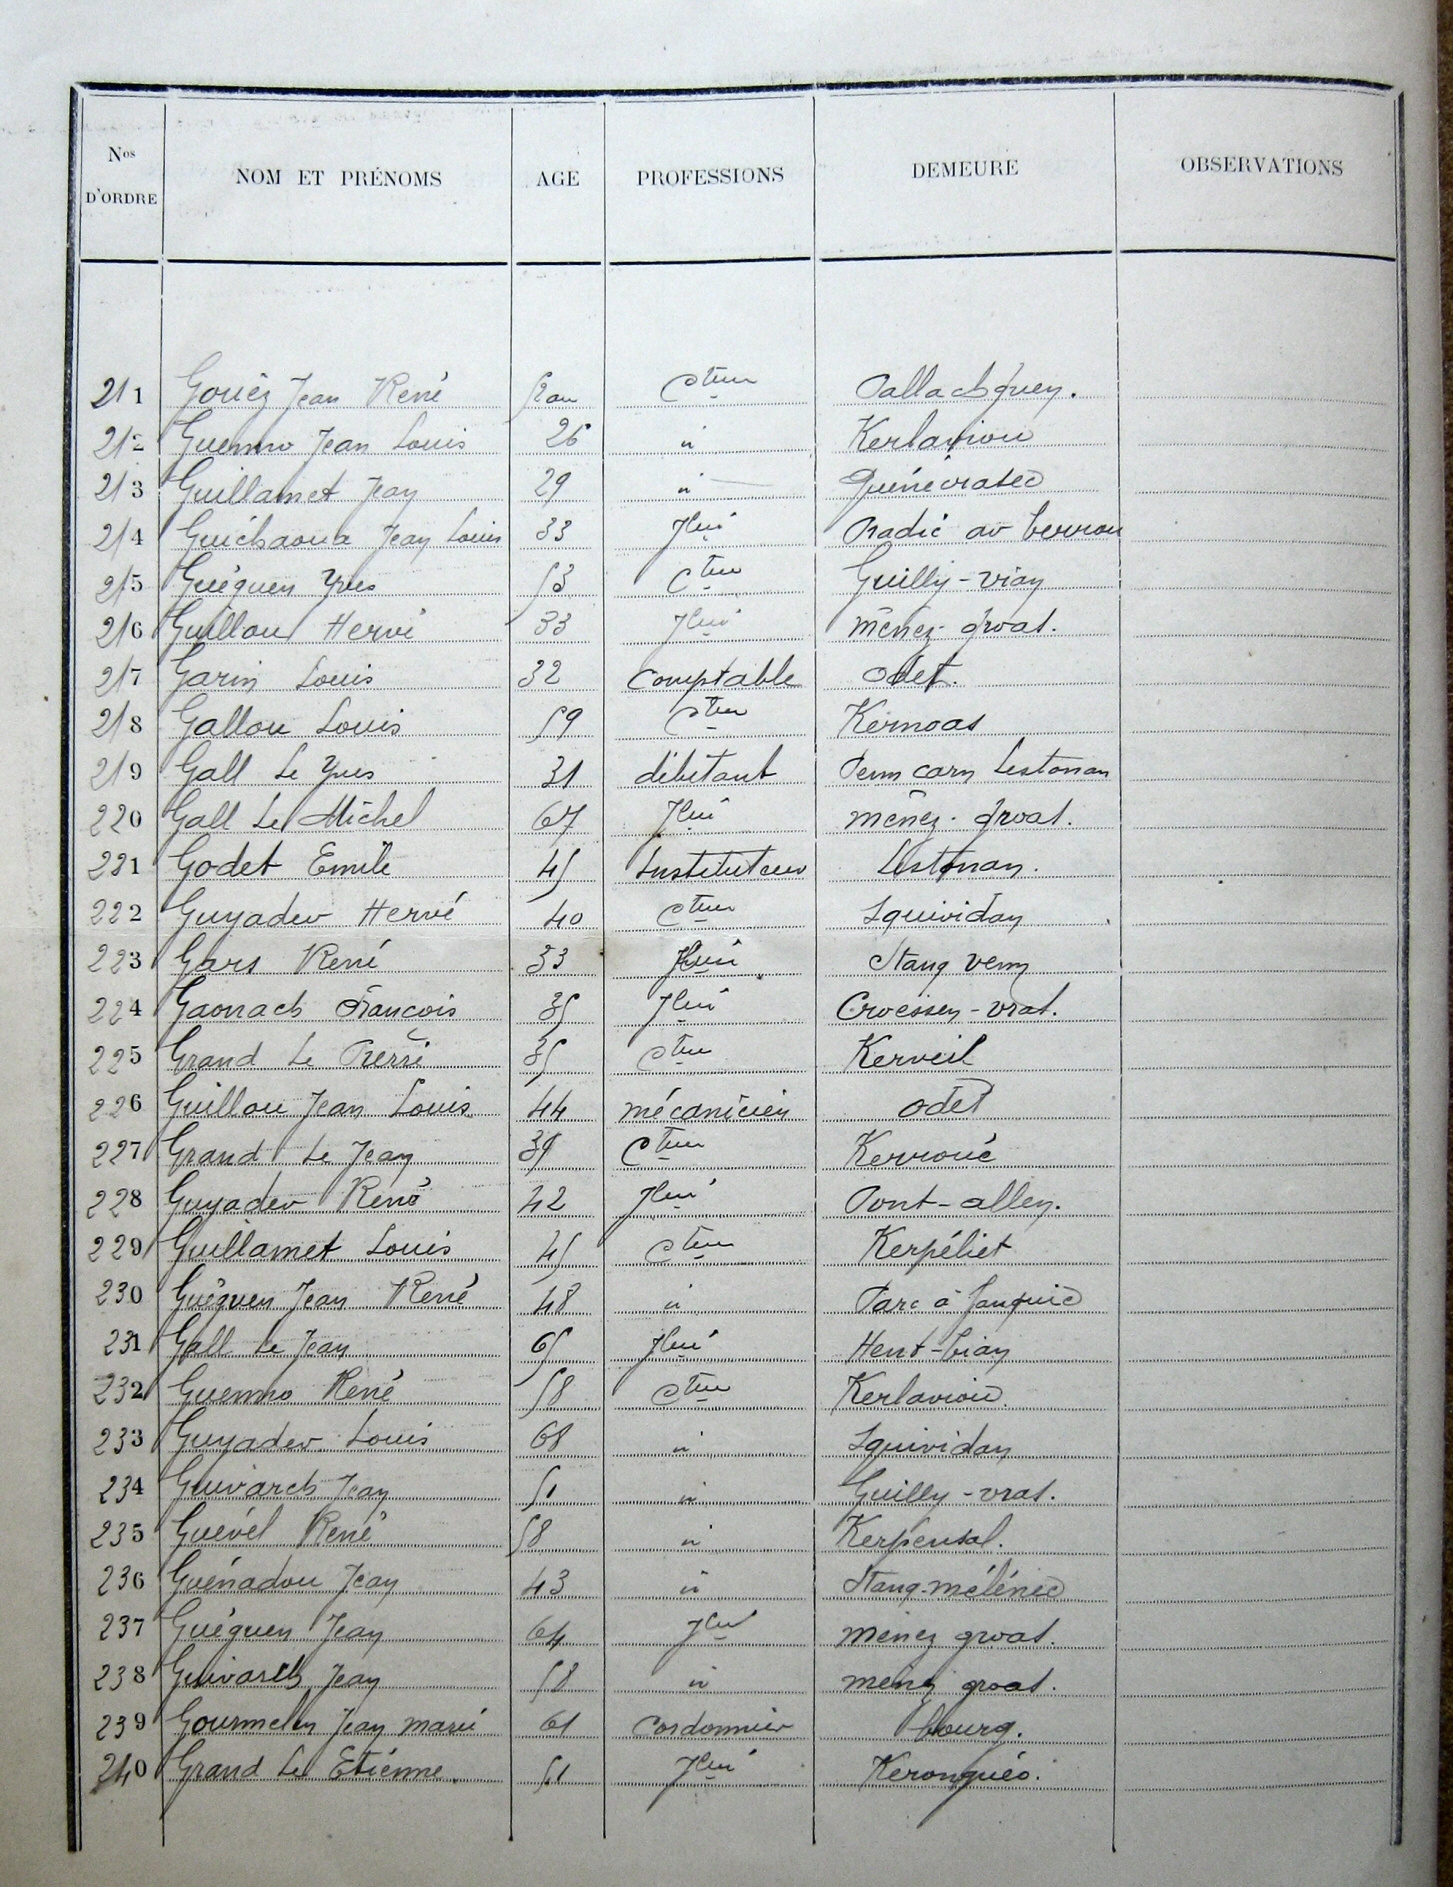 Nos D'ORDRE NOM ET PRÉNOMS AGE PROFESSIONS DEMEURE OBSERVATIONS
211 Gouéz Jean René 52 an Cteur
212 Guenno Jean Louis 26 id Kerlaviou
213 Guillamet Jean 29 id Quénécratec
214 Guichaoua Jean Louis 33 Jlier Pradic ar berrou
215 Guéguen Yves 53 Cteur Guilly-vian
216 Guillou Hervé 33 Jlier ménez-groas.
217 Garin Louis 32 Comptable Odet.
218 Gallou Louis 59 Cteur Kernoas
219 Gall Le Yves 31 débitant Penn carn Lestonan
220 Gall Le Michel 67 Jlier ménez-groas.
221 Godet Emile 45 Instituteur Lestonan.
222 Guyader Hervé 40 Cteur Squividan
223 Gars René 33 Jlier Stang venn
224 Gaonach François 35 Jlier Croessen-vras.
225 Grand Le Pierre 35 Cteur Kerveil
226 Guillou Jean Louis 44 mécanicien Odet
227 Grand Le Jean 39 Cteur Kerroué
228 Guyader René 42 Jlier Pont-allen.
229 Guillamet Louis 45 Cteur Kerpéliet
230 Guéguen Jean René 48 id Parc
231 Gall Le Jean 65 Jlier Hent-bian
232 Guenno René 58 Cteur Kerlaviou.
233 Guyader Louis 68 id Squividan
234 Guivarch Jean 51 id Guilly-vras.
235 Guével René 58 id
236 Guénadou Jean 43 id Stang-mélénec
237 Guéguen Jean 64 Jlier ménez groas.
238 Guivarch Jean 58 id ménez groas.
239 Gourmelen Jean marie 61 Cordonnier bourg.
240 Grand Le Etienne 51 Jlier Keronguéo.